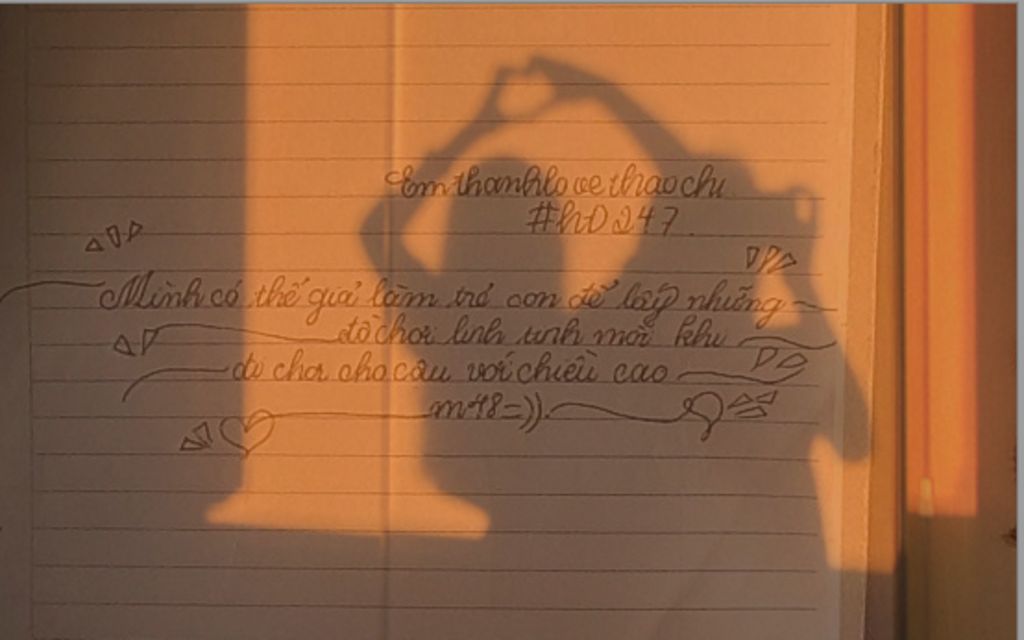 Emthanhlovethaochi
#hD247.
Mình có thể giả làm trẻ con để lấy những
đồ chơi linh tinh mỗi khi
đi chơi cho cậu với chiều cao
m48=)).